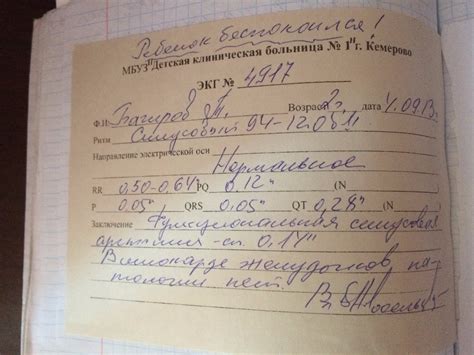 Ребенок беспокоился!
МБУЗ "Детская клиническая больница № 1" г. Кемерово
ЭКГ № 4917
Ф.И. Багиров Т. Возраст 2г. дата 4.09.13
Ритм Синусовый 94-120 б/1'
Направление электрической оси
Нормальное
RR 0,50-0,64" PQ 0,12" (N
P 0,05" QRS 0,05" QT 0,28" (N
Заключение Функциональная синусовая
аритмия 0,14"
В миокарде желудочков па-
тологии нет.